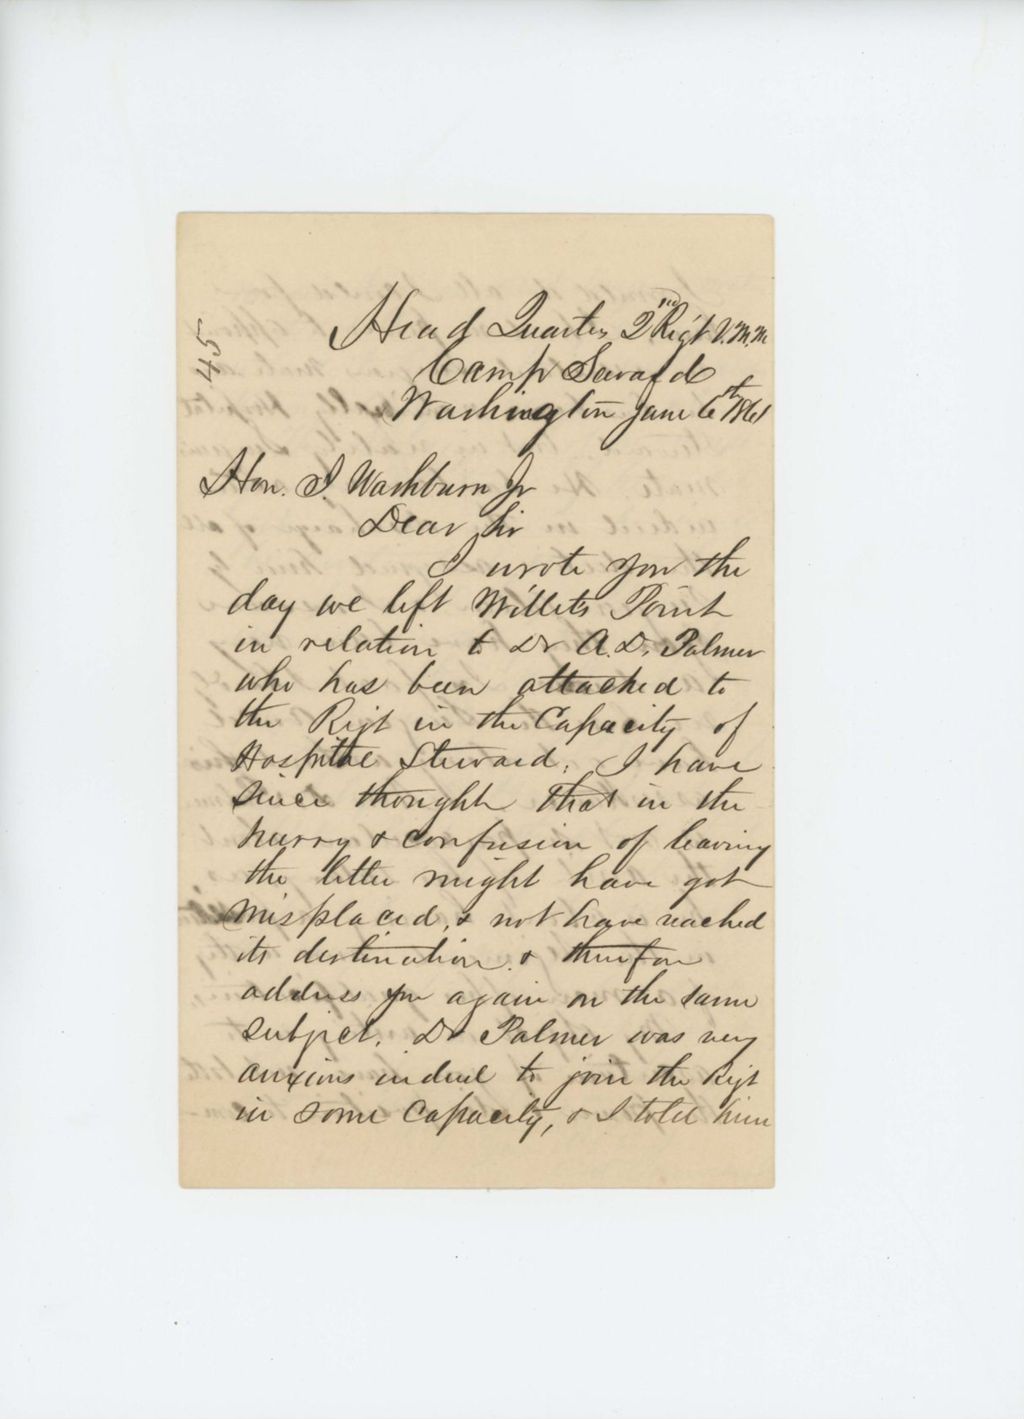 45
Head Quarters 2nd Regt V.M.M.
Camp Seward
Washington June 6th 1861
Hon. I. Washburn Jr
Dear Sir
I wrote you the
day we left Willets Point
in relation to Dr A.D. Palmer
who has been attached to
the Regt in the Capacity of
Hospital Steward. I have
since thought that in the
hurry & confusion of leaving
the letter might have got
misplaced, & not have reached
its destination & therefore
address you again on the same
subject. Dr Palmer was very
anxious indeed to join the Regt
in some capacity, & I told him